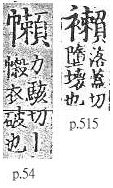 力駭切丨
衣破也
p.54
襰
落蓋切
墮壞也
p.515